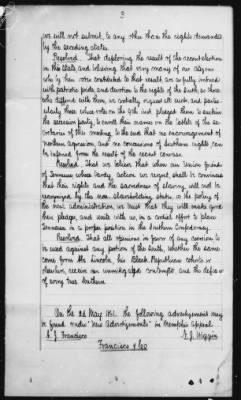 3
we will not submit, to any other than the rights demanded
by the seceding states.
Resolved. That deploring the result of the recent election
in this State, and believing that very many of our citizens
who by their vote contributed to that result, are as fully imbued
with patriotic pride, and devotion to the rights of the South, as those
who differed with them, we cordially request all such, and partic-
ularly those whose vote on the 9th inst pledged them to sustain
the secession party, to enroll their names on the tables of the se-
cretaries of this meeting, to the end that no encouragement of
northern aggression, and no concessions of Southern rights can
be inferred from the result of the recent canvass.
Resolved. That we believe that when our Union friends
of Tennessee whose hasty action we regret, shall be convinced
that their rights and the sacredness of slavery, will not be
recognized by the non slaveholding states, or the policy of
the next administration, we trust that they will make good
their pledges, and unite with us, in a cordial effort to place
Tennessee in a proper position in the Southern Confederacy.
Resolved. That all opinions in favor of any coercion to
be used against any portion of the South, whether the same
come from Mr Lincoln, his Black Republican cohorts or
elsewhere, receive our contempt and the defiance
of every true Southern
On the 2d May 1861. the following advertisement may
be found under "New Advertisements" in Memphis Appeal
A. J. Francisco W. J. Wiggin
Francisco & Co